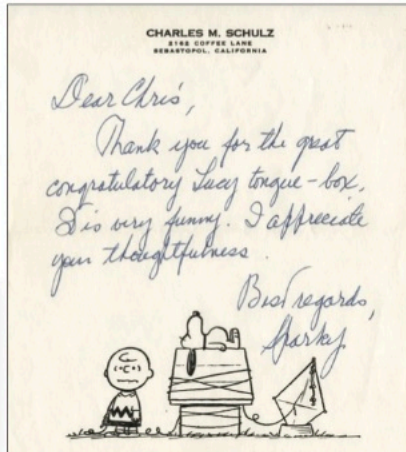 CHARLES M. SCHULZ
2162 COFFEE LANE
SEBASTOPOL, CALIFORNIA
Dear Chris,
Thank you for the great
congratulatory Lucy tongue-box.
It is very funny. I appreciate
your thoughtfulness.
Best regards,
Sparky